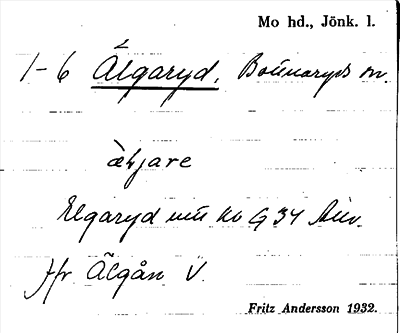 Mo hd., Jönk. l.
1-6 Älgaryd, Bottnaryds sn.
àljare
Elgaryd G 34
Jfr Älgån V.
Fritz Andersson 1932.